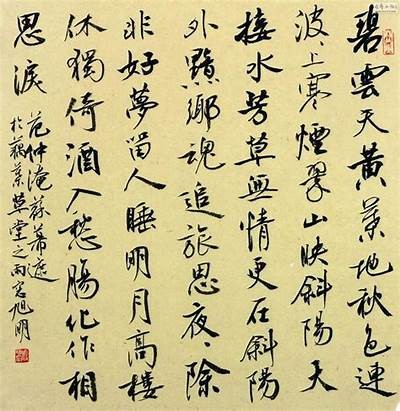 碧雲天黃葉地秋色連
波、上寒煙翠山映斜陽天
接水芳草無情更在斜陽
外黯鄉魂追旅思夜、除
非好夢留人睡明月高樓
休獨倚酒入愁腸化作相
思淚
范仲淹蘇幕遮
於藕葉草堂之雨窗旭明